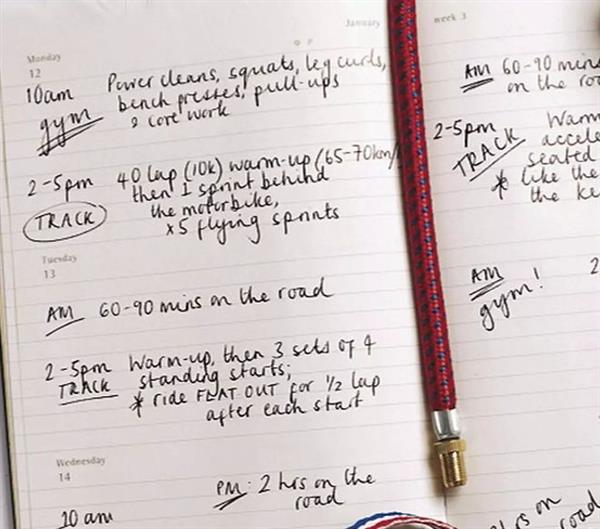 January
week 3
Monday
12
10am
gym
Power cleans, squats, leg curls,
bench presses, pull-ups
& core work
2-5pm
TRACK
40 lap (10k) warm-up (65-70km/
then 1 sprint behind
the motorbike,
x5 flying sprints
Tuesday
13
AM 60-90 mins on the road
2-5pm
TRACK
Warm-up, then 3 sets of 4
standing starts;
* ride FLAT OUT for 1/2 lap
after each start
Wednesday
14
10am
PM: 2 hrs on the
road
AM 60-90 mins
on the
2-5pm
TRACK
seated
* like the
the
AM
gym!
2
hrs on
road